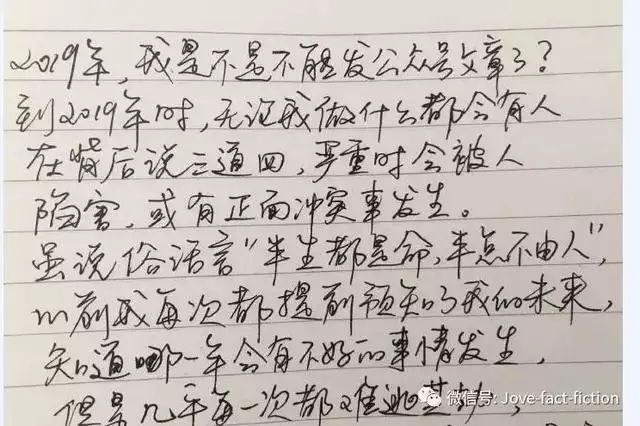 2019年，我是不是不能发公众号文章了？
到2019年时，无论我做什么都会有人
在背后说三道四，严重时会被人
陷害，或有正面冲突事发生。
虽说俗话言“半生都是命，半点不由人”，
以前我每次都提前预知了我的未来，
知道哪一年会有不好的事情发生，
但是几乎每一次都难逃其劫，
微信号: Jove-fact-fiction